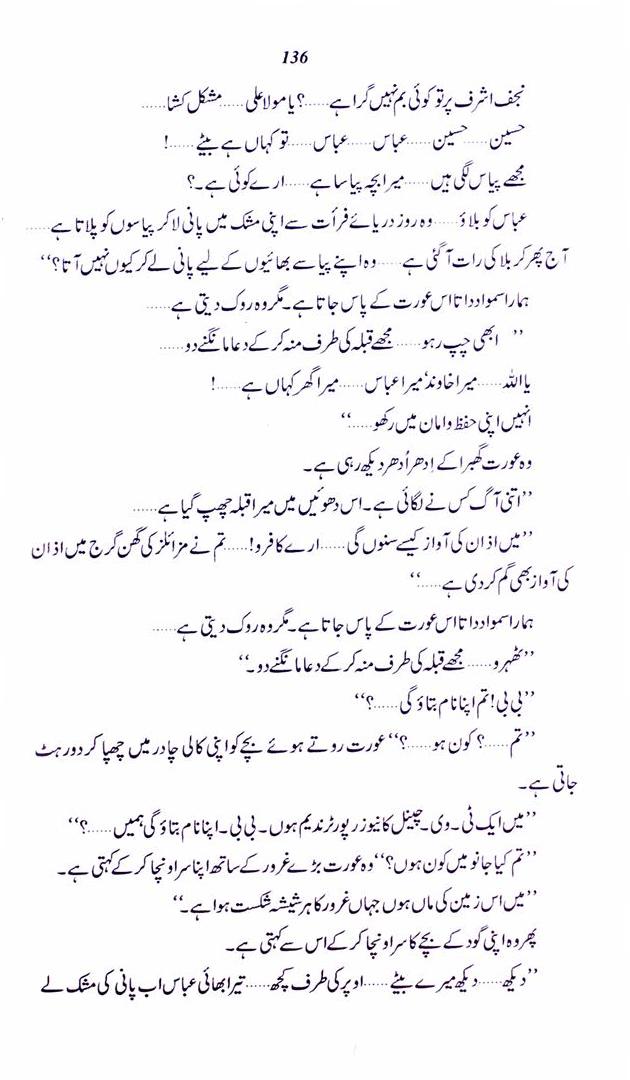 136
نجف اشرف پر تو کوئی بم نہیں گرا ہے......؟ یا مولا علی......مشکل کشا......
حسین......حسین......عباس......عباس......تو کہاں ہے بیٹے......!
مجھے پیاس لگی ہیں......میرا بچہ پیاسا ہے......ارے کوئی ہے۔؟
عباس کو بلاؤ......وہ روز دریائے فرأت سے اپنی مشک میں پانی لا کر پیاسوں کو پلاتا ہے......
آج پھر کربلا کی رات آ گئی ہے......وہ اپنے پیاسے بھائیوں کے لیے پانی لے کر کیوں نہیں آتا؟‘‘
ہمارا سمواددا تا اس عورت کے پاس جاتا ہے۔ مگر وہ روک دیتی ہے......
’’ ابھی چپ رہو......مجھے قبلہ کی طرف منہ کر کے دعا مانگنے دو......
یا اللہ......میرا خاوند‘ میرا عباس......میرا گھر کہاں ہے......!
انہیں اپنی حفظ و امان میں رکھو......‘‘
وہ عورت گھبرا کے اِدھر اُدھر دیکھ رہی ہے۔
’’اتنی آگ کس نے لگائی ہے۔ اس دھوئیں میں میرا قبلہ چھپ گیا ہے......
’’میں اذان کی آواز کیسے سنوں گی......ارے کافرو!......تم نے مزائلز کی گھن گرج میں اذان
کی آواز بھی گم کر دی ہے......‘‘
ہمارا سمواددا تا اس عورت کے پاس جاتا ہے۔ مگر وہ روک دیتی ہے......
’’ٹھہرو......مجھے قبلہ کی طرف منہ کر کے دعا مانگنے دو۔‘‘
’’بی بی! تم اپنا نام بتاؤ گی......؟‘‘
’’تم......؟ کون ہو......؟‘‘ عورت روتے ہوئے بچے کو اپنی کالی چادر میں چھپا کر دور ہٹ
جاتی ہے۔
’’میں ایک ٹی۔ وی۔ چینل کا نیوز رپورٹر ندیم ہوں۔ بی بی۔ اپنا نام بتاؤ گی ہمیں......؟‘‘
’’تم کیا جانو میں کون ہوں؟‘‘ وہ عورت بڑے غرور کے ساتھ اپنا سر اونچا کر کے کہتی ہے۔
’’میں اس زمین کی ماں ہوں جہاں غرور کا ہر شیشہ شکست ہوا ہے۔‘‘
پھر وہ اپنی گود کے بچے کا سر اونچا کر کے اس سے کہتی ہے۔
’’دیکھ......دیکھ میرے بیٹے......اوپر کی طرف کچھ......تیرا بھائی عباس اب پانی کی مشک لے